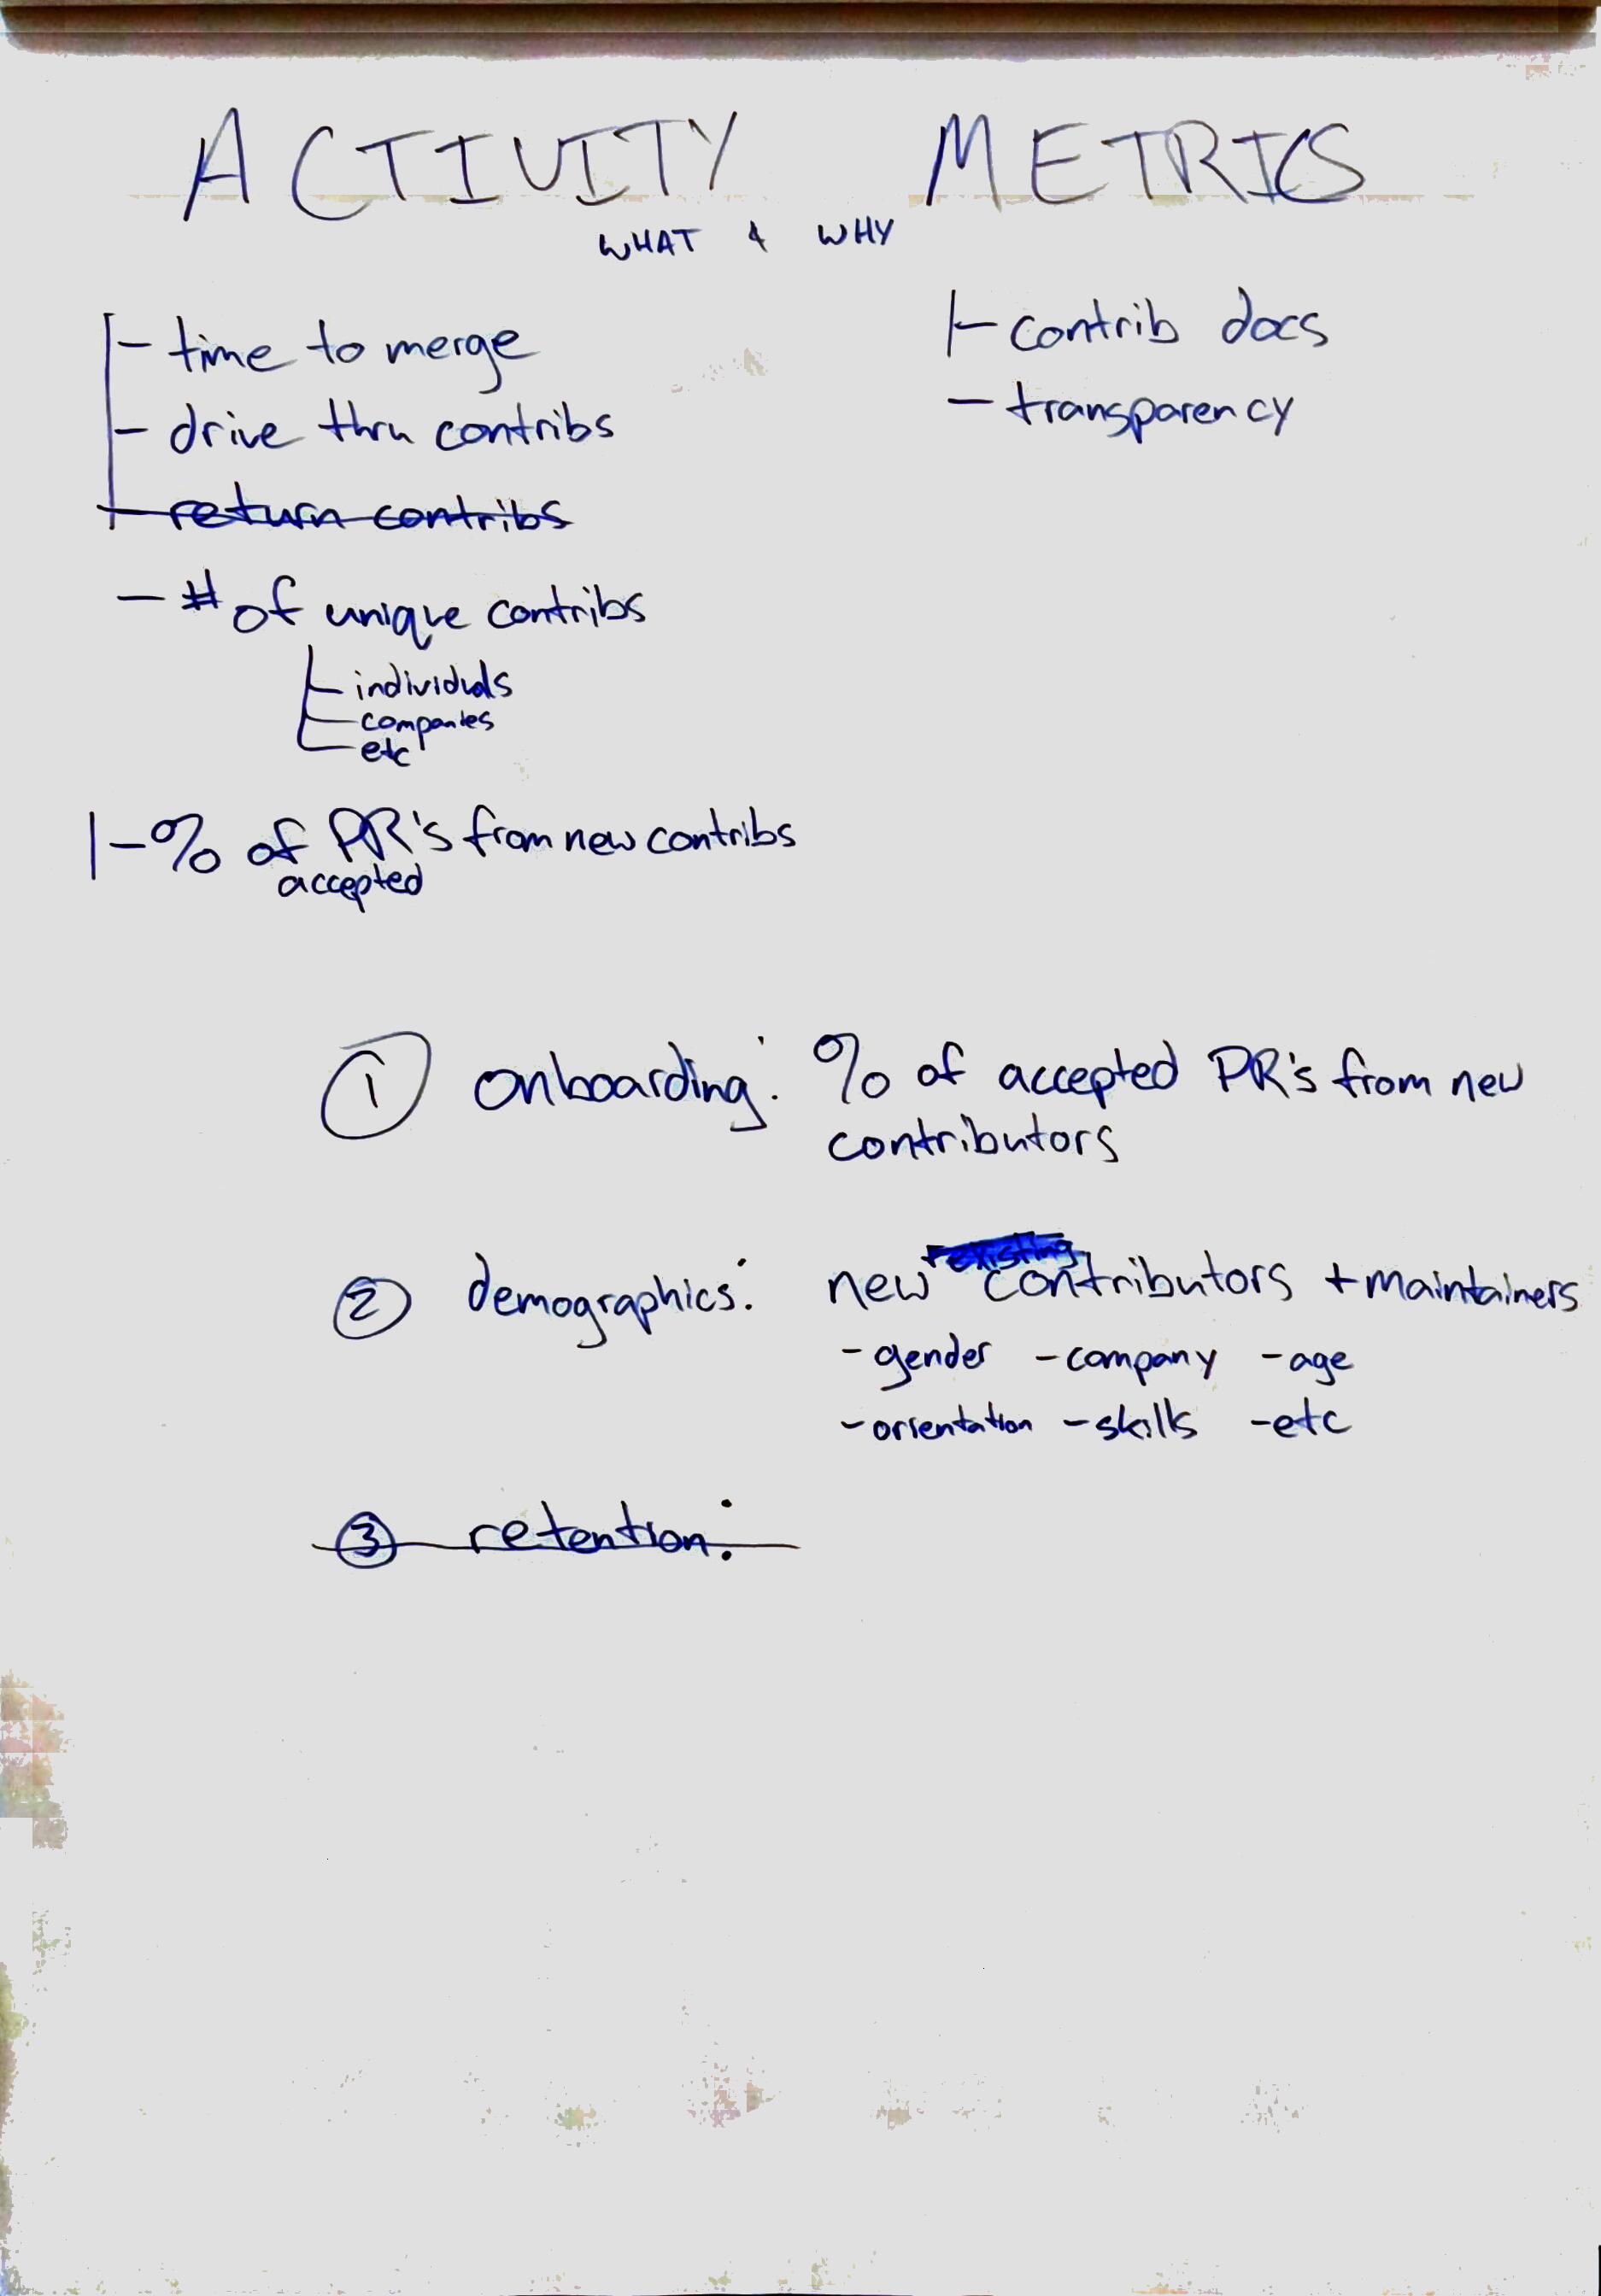 ACTIVITY METRICS
WHAT & WHY
- time to merge
- drive thru contribs
- return contribs
- # of unique contribs
- individuals
- companies
- etc
- % of PR's from new contribs
accepted
- contrib docs
- transparency
1 onboarding: % of accepted PR's from new
contributors
+ existing
2 demographics: new contributors + maintainers
- gender - company - age
- orientation - skills - etc
3 retention: